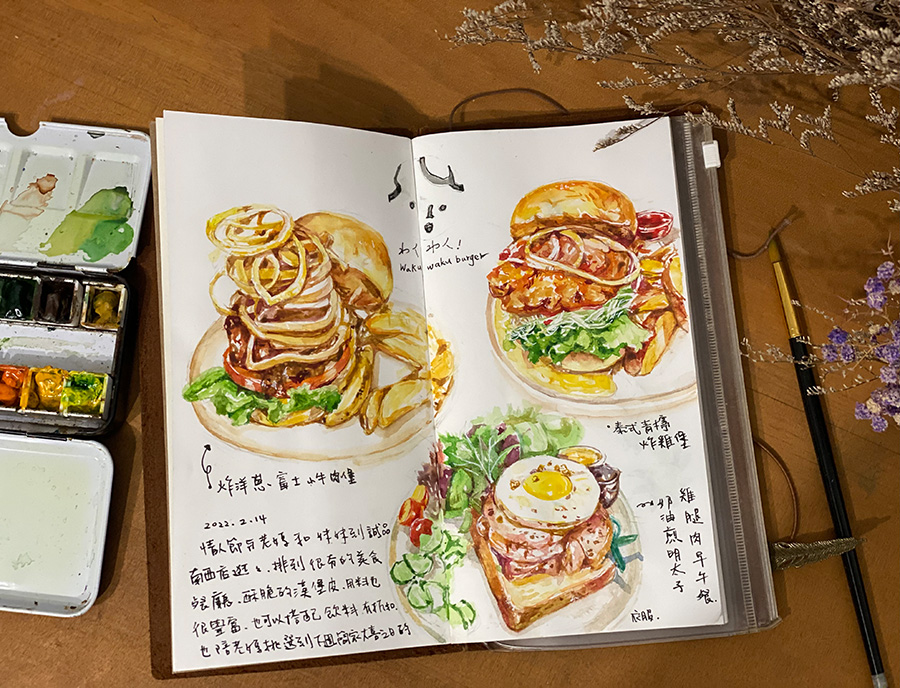 わくわく!
Waku waku burger
炸洋蔥、富士山牛肉堡
2022.2.14
情人節與老媽和妹妹到誠品
南西店逛逛、排到很夯的美食
餐廳、酥脆的漢堡皮、用料也
很豐富、也可以搭配飲料有折扣、
也陪老媽挑選到下週簡家大喜之日的
衣服.
·泰式青檸
炸雞堡
雞腿肉早午餐.
奶油煎明太子